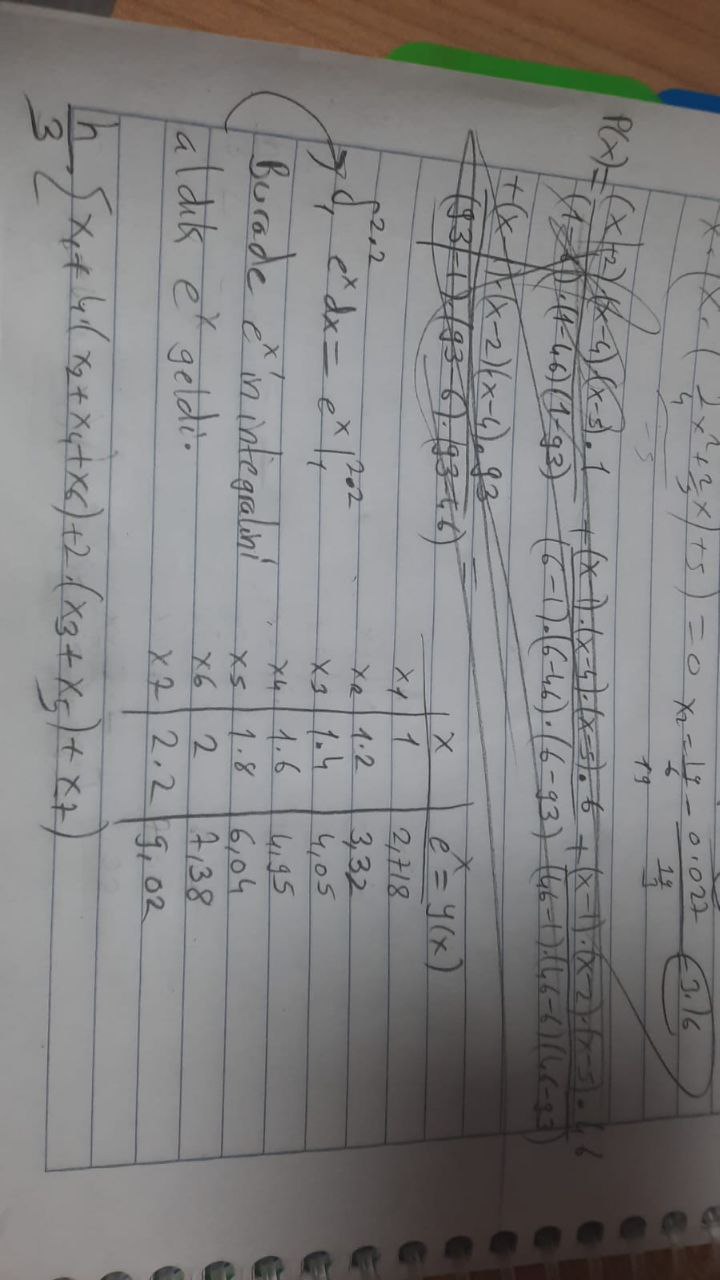 x.(x.(1/4 x² + 2/3 x)+5) = 0 x₂ = 19/6 - 0.027/19 3.16
19
P(x) = (x-2).(x-4).(x-5).1 / (1-6).(1-46)(1-93) + (x-1).(x-4).(x-5).6 / (6-1).(6-46).(6-93) + (x-1).(x-2).(x-5).46 / (46-1).(46-6)(46-93)
+ (x-1).(x-2)(x-4).93 / (93-1).(93-6).(93-46) =
∫₁^2.2 eˣ dx = eˣ |₁^2.2
Burada eˣ'in integralini
aldık eˣ geldi.
x eˣ = y(x)
x1 1 2,718
x2 1.2 3,32
x3 1.4 4,05
x4 1.6 4,95
x5 1.8 6,04
x6 2 7,38
x7 2.2 9,02
h/3 { x1 + 4.(x2 + x4 + x6) + 2.(x3 + x5) + x7)